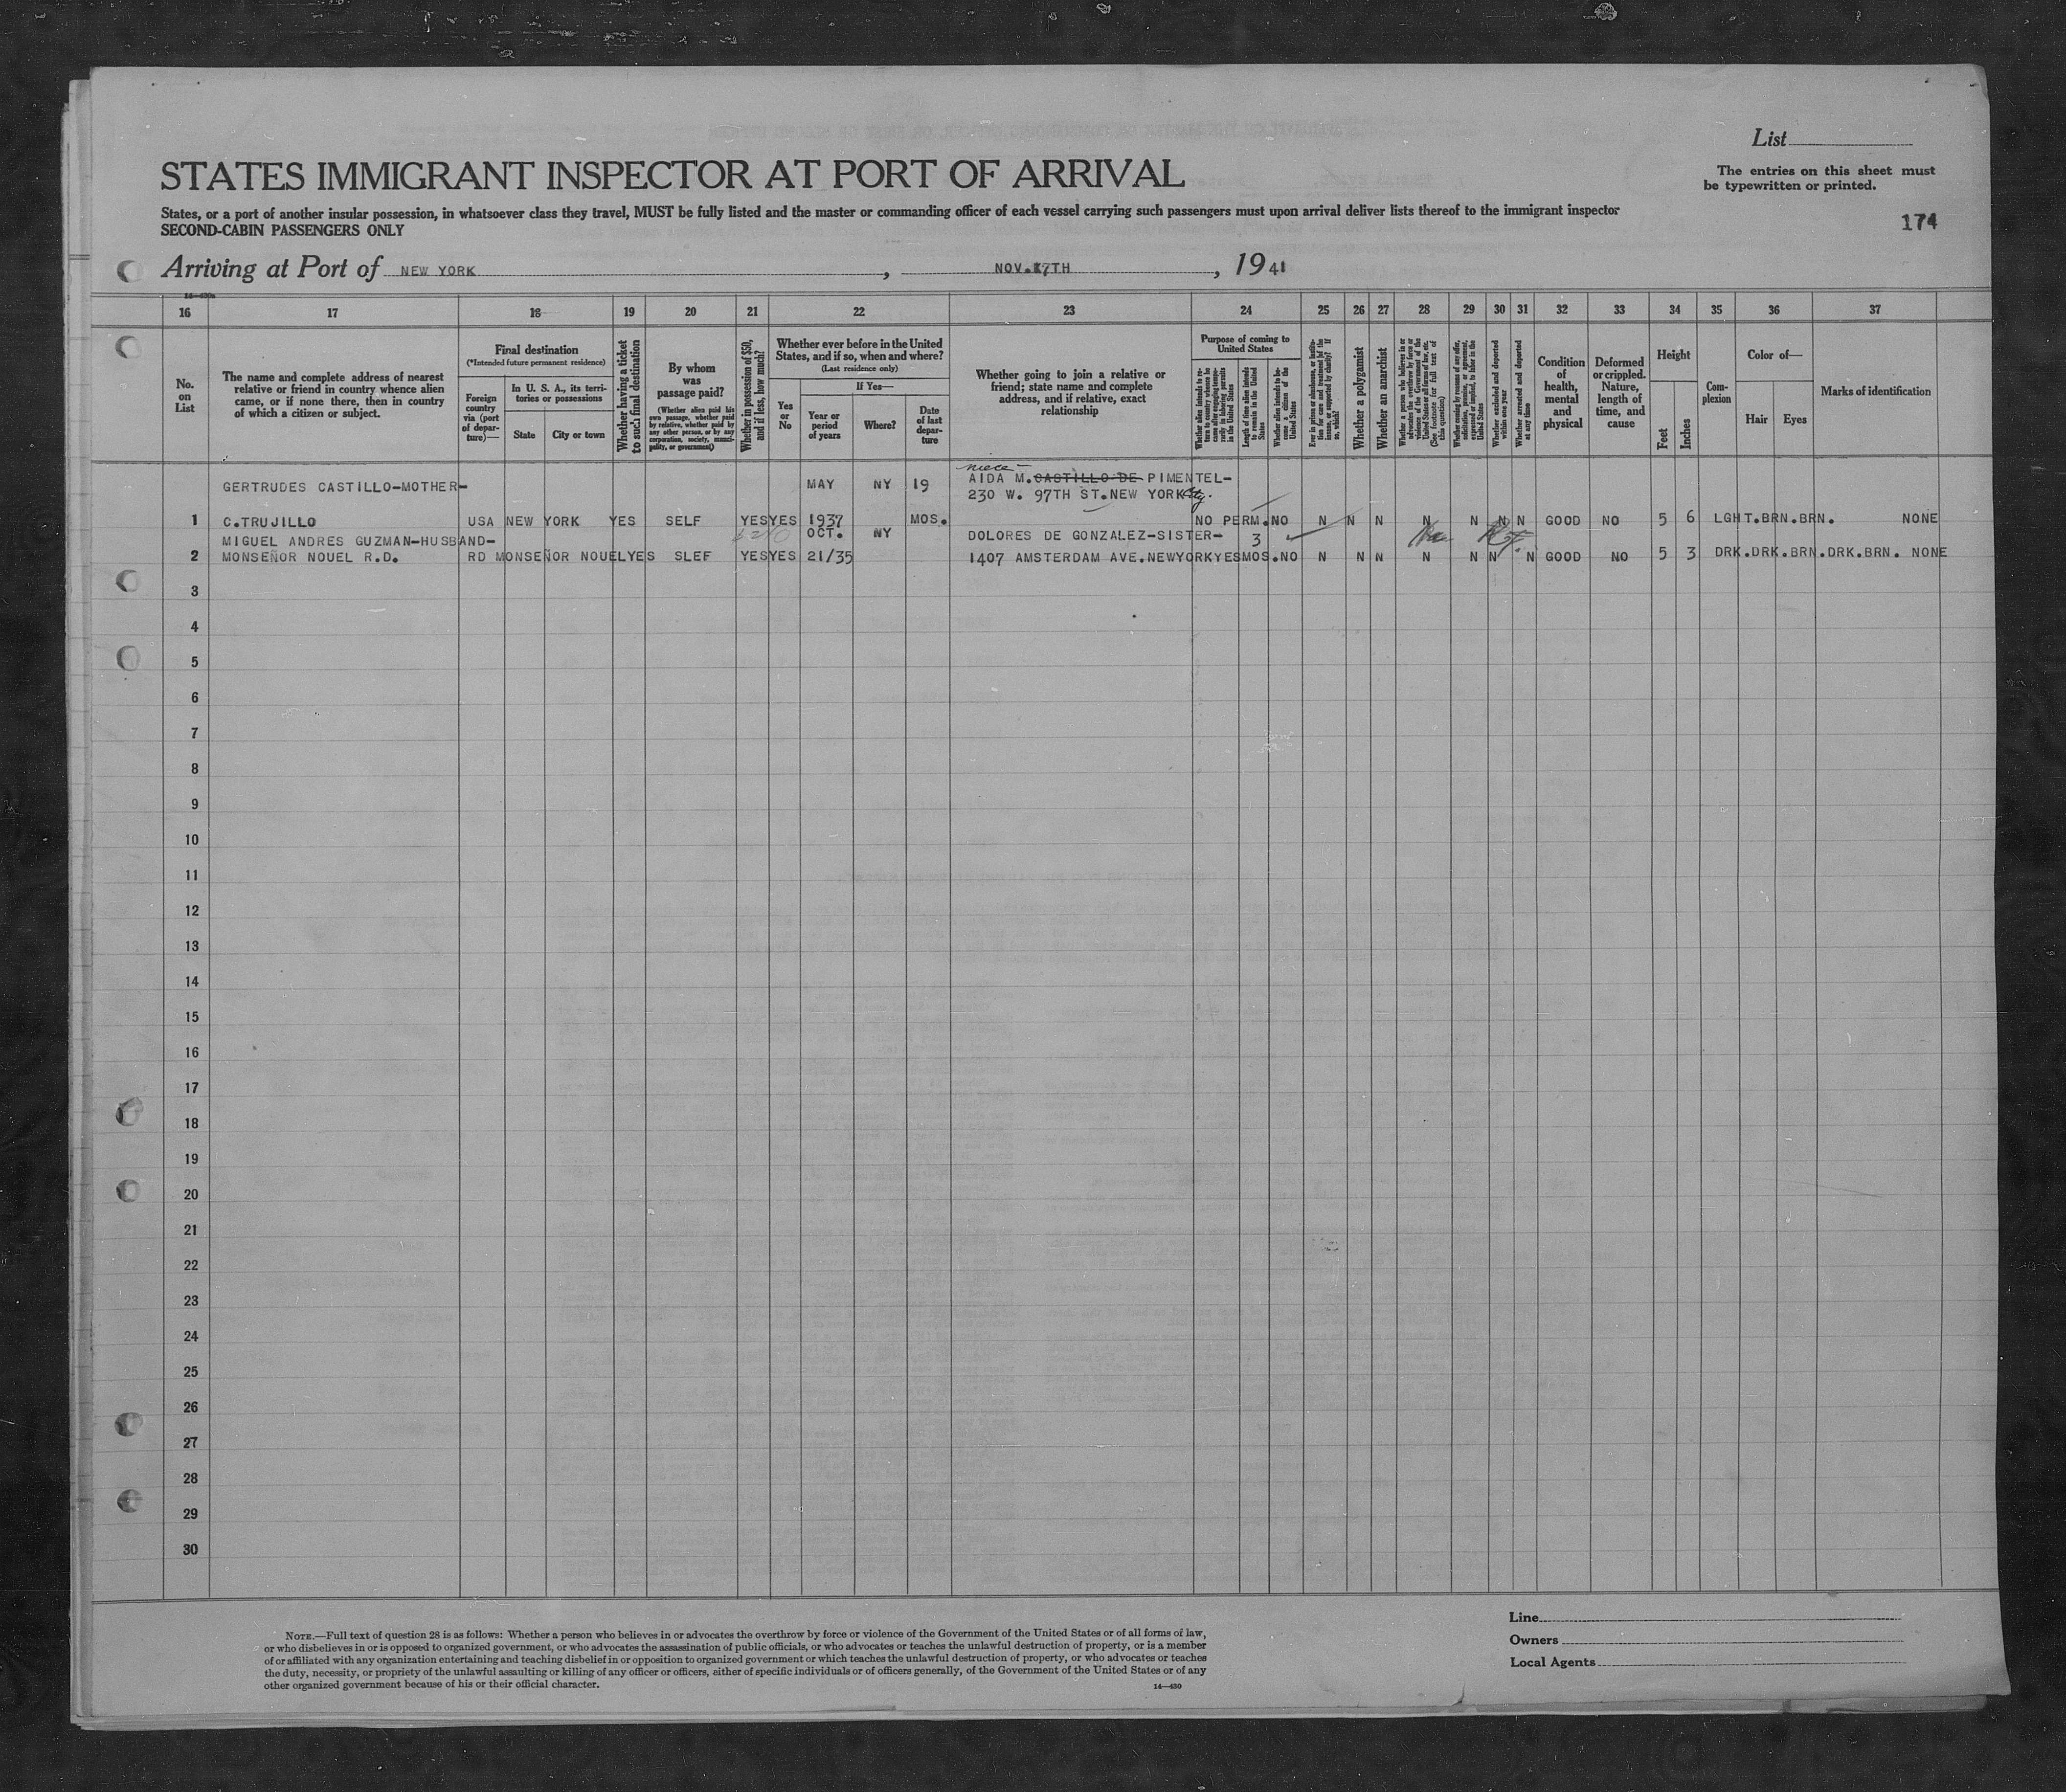 List
The entries on this sheet must
be typewritten or printed.
STATES IMMIGRANT INSPECTOR AT PORT OF ARRIVAL
States, or a port of another insular possession, in whatsoever class they travel, MUST be fully listed and the master or commanding officer of each vessel carrying such passengers must upon arrival deliver lists thereof to the immigrant inspector
SECOND-CABIN PASSENGERS ONLY
174
Arriving at Port of NEW YORK, NOV. 17TH, 1941
16 17 18 19 20 21 22 23 24 25 26 27 28 29 30 31 32 33 34 35 36 37
No. on List
The name and complete address of nearest relative or friend in country whence alien came, or if none there, then in country of which a citizen or subject.
Final destination
(*Intended future permanent residence)
Foreign country via (port of departure)—
In U. S. A., its territories or possessions
State
City or town
Whether having a ticket to such final destination
By whom was passage paid?
(Whether alien paid his own passage, whether paid by relative, whether paid by any other person, or by any corporation, society, municipality, or government)
Whether in possession of $50, and if less, how much?
Whether ever before in the United States, and if so, when and where?
(Last residence only)
Yes or No
If Yes—
Year or period of years
Where?
Date of last departure
Whether going to join a relative or friend; state name and complete address, and if relative, exact relationship
Purpose of coming to United States
Whether alien intends to return to country whence he came after engaging temporarily in laboring pursuits in the United States
Length of time alien intends to remain in the United States
Whether alien intends to become a citizen of the United States
Ever in prison or almshouse, or institution for care and treatment of the insane, or supported by charity? If so, which?
Whether a polygamist
Whether an anarchist
Whether a person who believes in or advocates the overthrow by force or violence of the Government of the United States or all forms of law, etc. (See footnote for full text of this question)
Whether coming by reason of any offer, solicitation, promise, or agreement, expressed or implied, to labor in the United States
Whether excluded and deported within one year
Whether arrested and deported at any time
Condition of health, mental and physical
Deformed or crippled. Nature, length of time, and cause
Height
Feet
Inches
Complexion
Color of—
Hair
Eyes
Marks of identification
niece —
GERTRUDES CASTILLO-MOTHER- MAY NY 19 AIDA M. CASTILLO DE PIMENTEL-
230 W. 97TH ST. NEW YORK
1 C.TRUJILLO USA NEW YORK YES SELF YES YES 1937 MOS. NO PERM. NO N N N N N N N GOOD NO 5 6 LGHT. BRN. BRN. NONE
MIGUEL ANDRES GUZMAN-HUSBAND- OCT. NY DOLORES DE GONZALEZ-SISTER- 3
2 MONSEÑOR NOUEL R.D. RD MONSEÑOR NOUEL YES SLEF YES YES 21/35 1407 AMSTERDAM AVE. NEWYORK YES MOS. NO N N N N N N N GOOD NO 5 3 DRK. DRK.BRN. DRK.BRN. NONE
3
4
5
6
7
8
9
10
11
12
13
14
15
16
17
18
19
20
21
22
23
24
25
26
27
28
29
30
NOTE.—Full text of question 28 is as follows: Whether a person who believes in or advocates the overthrow by force or violence of the Government of the United States or of all forms of law,
or who disbelieves in or is opposed to organized government, or who advocates the assassination of public officials, or who advocates or teaches the unlawful destruction of property, or is a member
of or affiliated with any organization entertaining and teaching disbelief in or opposition to organized government or which teaches the unlawful destruction of property, or who advocates or teaches
the duty, necessity, or propriety of the unlawful assaulting or killing of any officer or officers, either of specific individuals or of officers generally, of the Government of the United States or of any
other organized government because of his or their official character.
14—430
Line
Owners
Local Agents